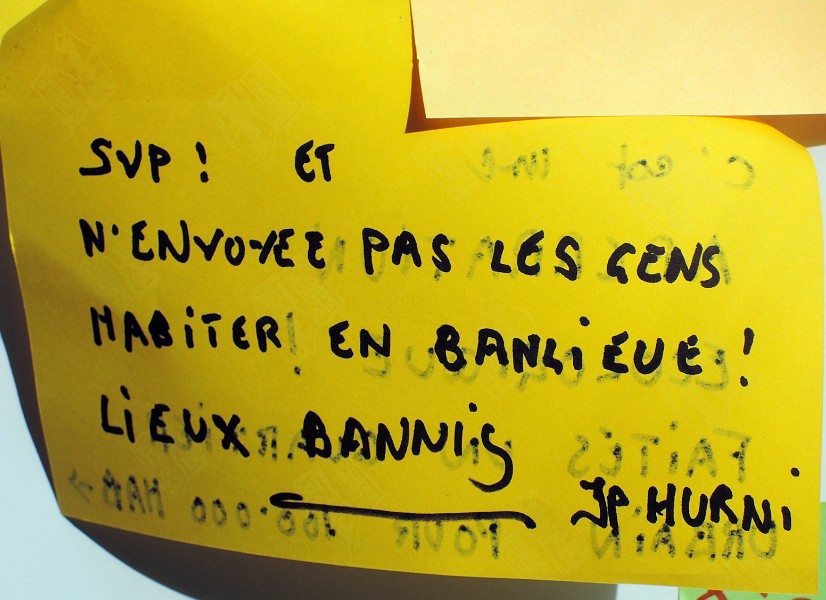 SVP! ET
N'ENVOYEZ PAS LES GENS
HABITER EN BANLIEUE!
LIEUX BANNIS
JP HURNI